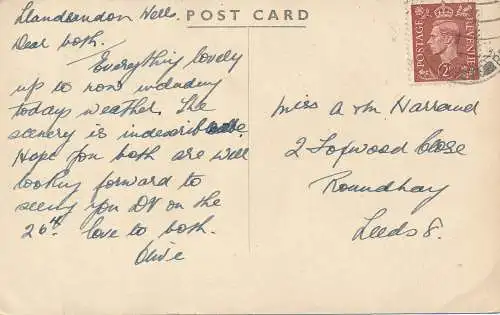 Llandsandon Wells.
POST CARD
Dear both.
Everything lovely
up to now including
todays weather. The
scenery is indescribable.
Hope you both are well
looking forward to
seeing you DV on the
26th. love to both.
Olive
POSTAGE REVENUE
2D
miss A & M Harrand
2 Foxwood Close
Roundhay
Leeds 8.